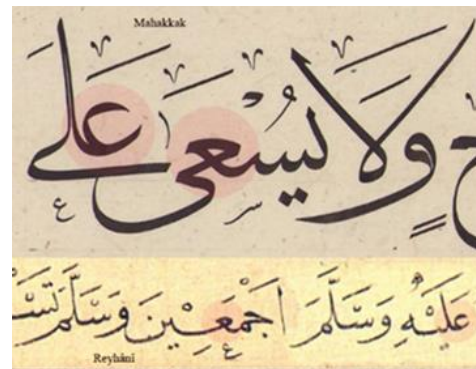 Mahakkak
ولا يسعى على
عليه وسلم اجمعين وسلم
Reyhânî